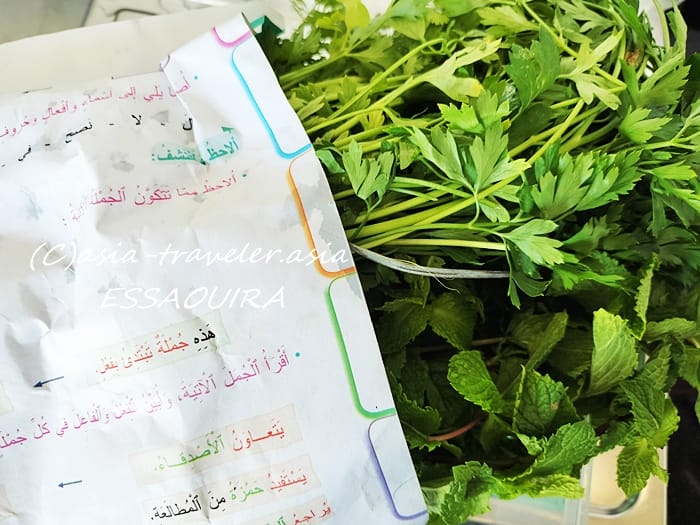 يلي إلى أسماء وأفعال وحروف
ل - لا - نصح - في -
ألاحظ
• ألاحظ مِمَّا تَتَكَوَّنُ ٱلْجُمْلَةُ
(C)asia-traveler.asia
ESSAOUIRA
هَذِهِ جُمْلَةٌ تَبْتَدِئُ بِفِعْلٍ.
• أَقْرَأُ ٱلْجُمَلَ ٱلْآتِيَةَ، وَٱلْفَاعِلَ فِي كُلِّ جُمْلَةٍ
يَتَعَاوَنُ ٱلْأَصْدِقَاءُ.
يَسْتَفِيدُ حَمْزَةُ مِنَ ٱلْمُطَالَعَةِ.
يُرَاجِعُ